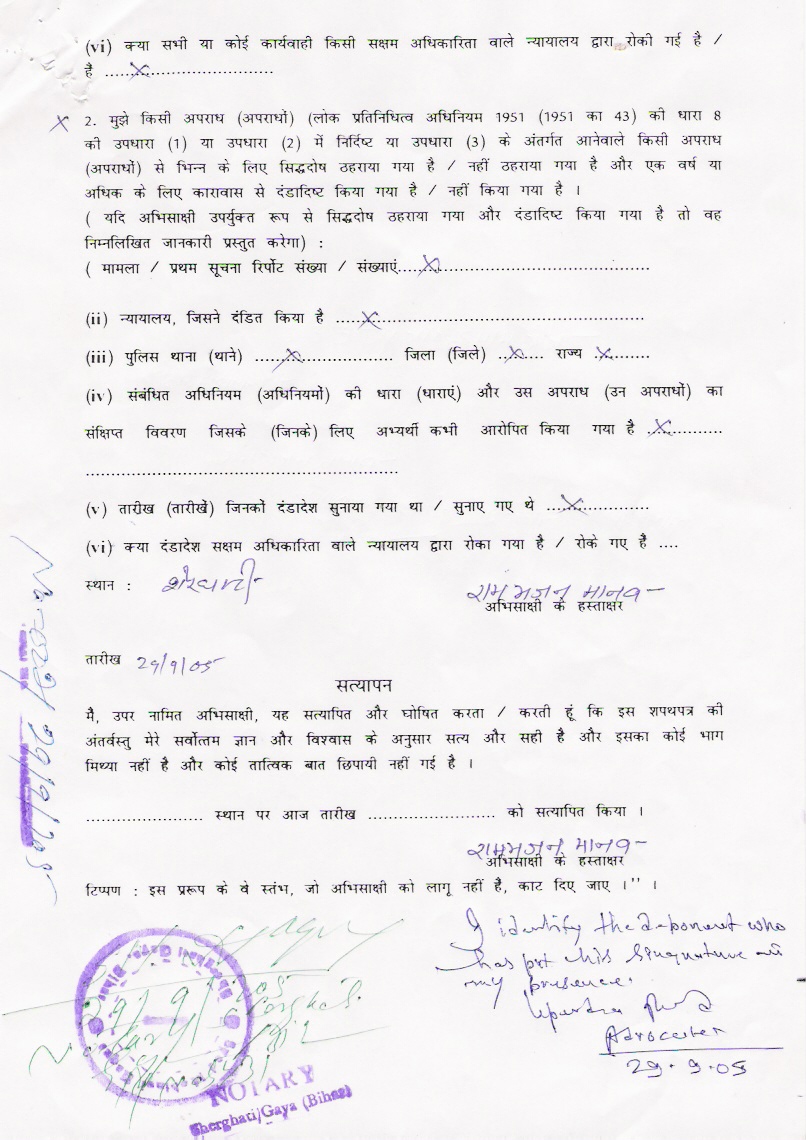 (vi) क्या सभी या कोई कार्यवाही किसी सक्षम अधिकारिता वाले न्यायालय द्वारा रोकी गई है /
है ......X..............................
X 2. मुझे किसी अपराध (अपराधों) (लोक प्रतिनिधित्व अधिनियम 1951 (1951 का 43) की धारा 8
की उपधारा (1) या उपधारा (2) में निर्दिष्ट या उपधारा (3) के अंतर्गत आनेवाले किसी अपराध
(अपराधों) से भिन्न के लिए सिद्धदोष ठहराया गया है / नहीं ठहराया गया है और एक वर्ष या
अधिक के लिए कारावास से दंडादिष्ट किया गया है / नहीं किया गया है ।
( यदि अभिसाक्षी उपर्युक्त रूप से सिद्धदोष ठहराया गया और दंडादिष्ट किया गया है तो वह
निम्नलिखित जानकारी प्रस्तुत करेगा) :
( मामला / प्रथम सूचना रिर्पोट संख्या / संख्याएं.....X..................................................
(ii) न्यायालय, जिसने दंडित किया है ......X................................................................
(iii) पुलिस थाना (थाने) ........X...................... जिला (जिले) ...X...... राज्य .X.........
(iv) संबंधित अधिनियम (अधिनियमों) की धारा (धाराएं) और उस अपराध (उन अपराधों) का
संक्षिप्त विवरण जिसके (जिनके) लिए अभ्यर्थी कभी आरोपित किया गया है .X............
...........................................................................
(v) तारीख (तारीखें) जिनकों दंडादेश सुनाया गया था / सुनाए गए थे .....X..................
(vi) क्या दंडादेश सक्षम अधिकारिता वाले न्यायालय द्वारा रोका गया है / रोके गए है ....
स्थान : शेरघाटी
रामभजन मानव
अभिसाक्षी के हस्ताक्षर
तारीख 29/9/05
सत्यापन
मै, उपर नामित अभिसाक्षी, यह सत्यापित और घोषित करता / करती हूं कि इस शपथपत्र की
अंतर्वस्तु मेरे सर्वोत्तम ज्ञान और विश्वास के अनुसार सत्य और सही है और इसका कोई भाग
मिथ्या नहीं है और कोई तात्विक बात छिपायी नहीं गई है ।
........................ स्थान पर आज तारीख .......................... को सत्यापित किया ।
रामभजन मानव
अभिसाक्षी के हस्ताक्षर
टिप्पण : इस प्ररूप के वे स्तंभ, जो अभिसाक्षी को लागू नहीं है, काट दिए जाए ।" ।
I identify the deponent who
has put his Singnature in
my presence.
Advocate
29.9.05
29/9/05
NOTARY
Sherghati/Gaya (Bihar)